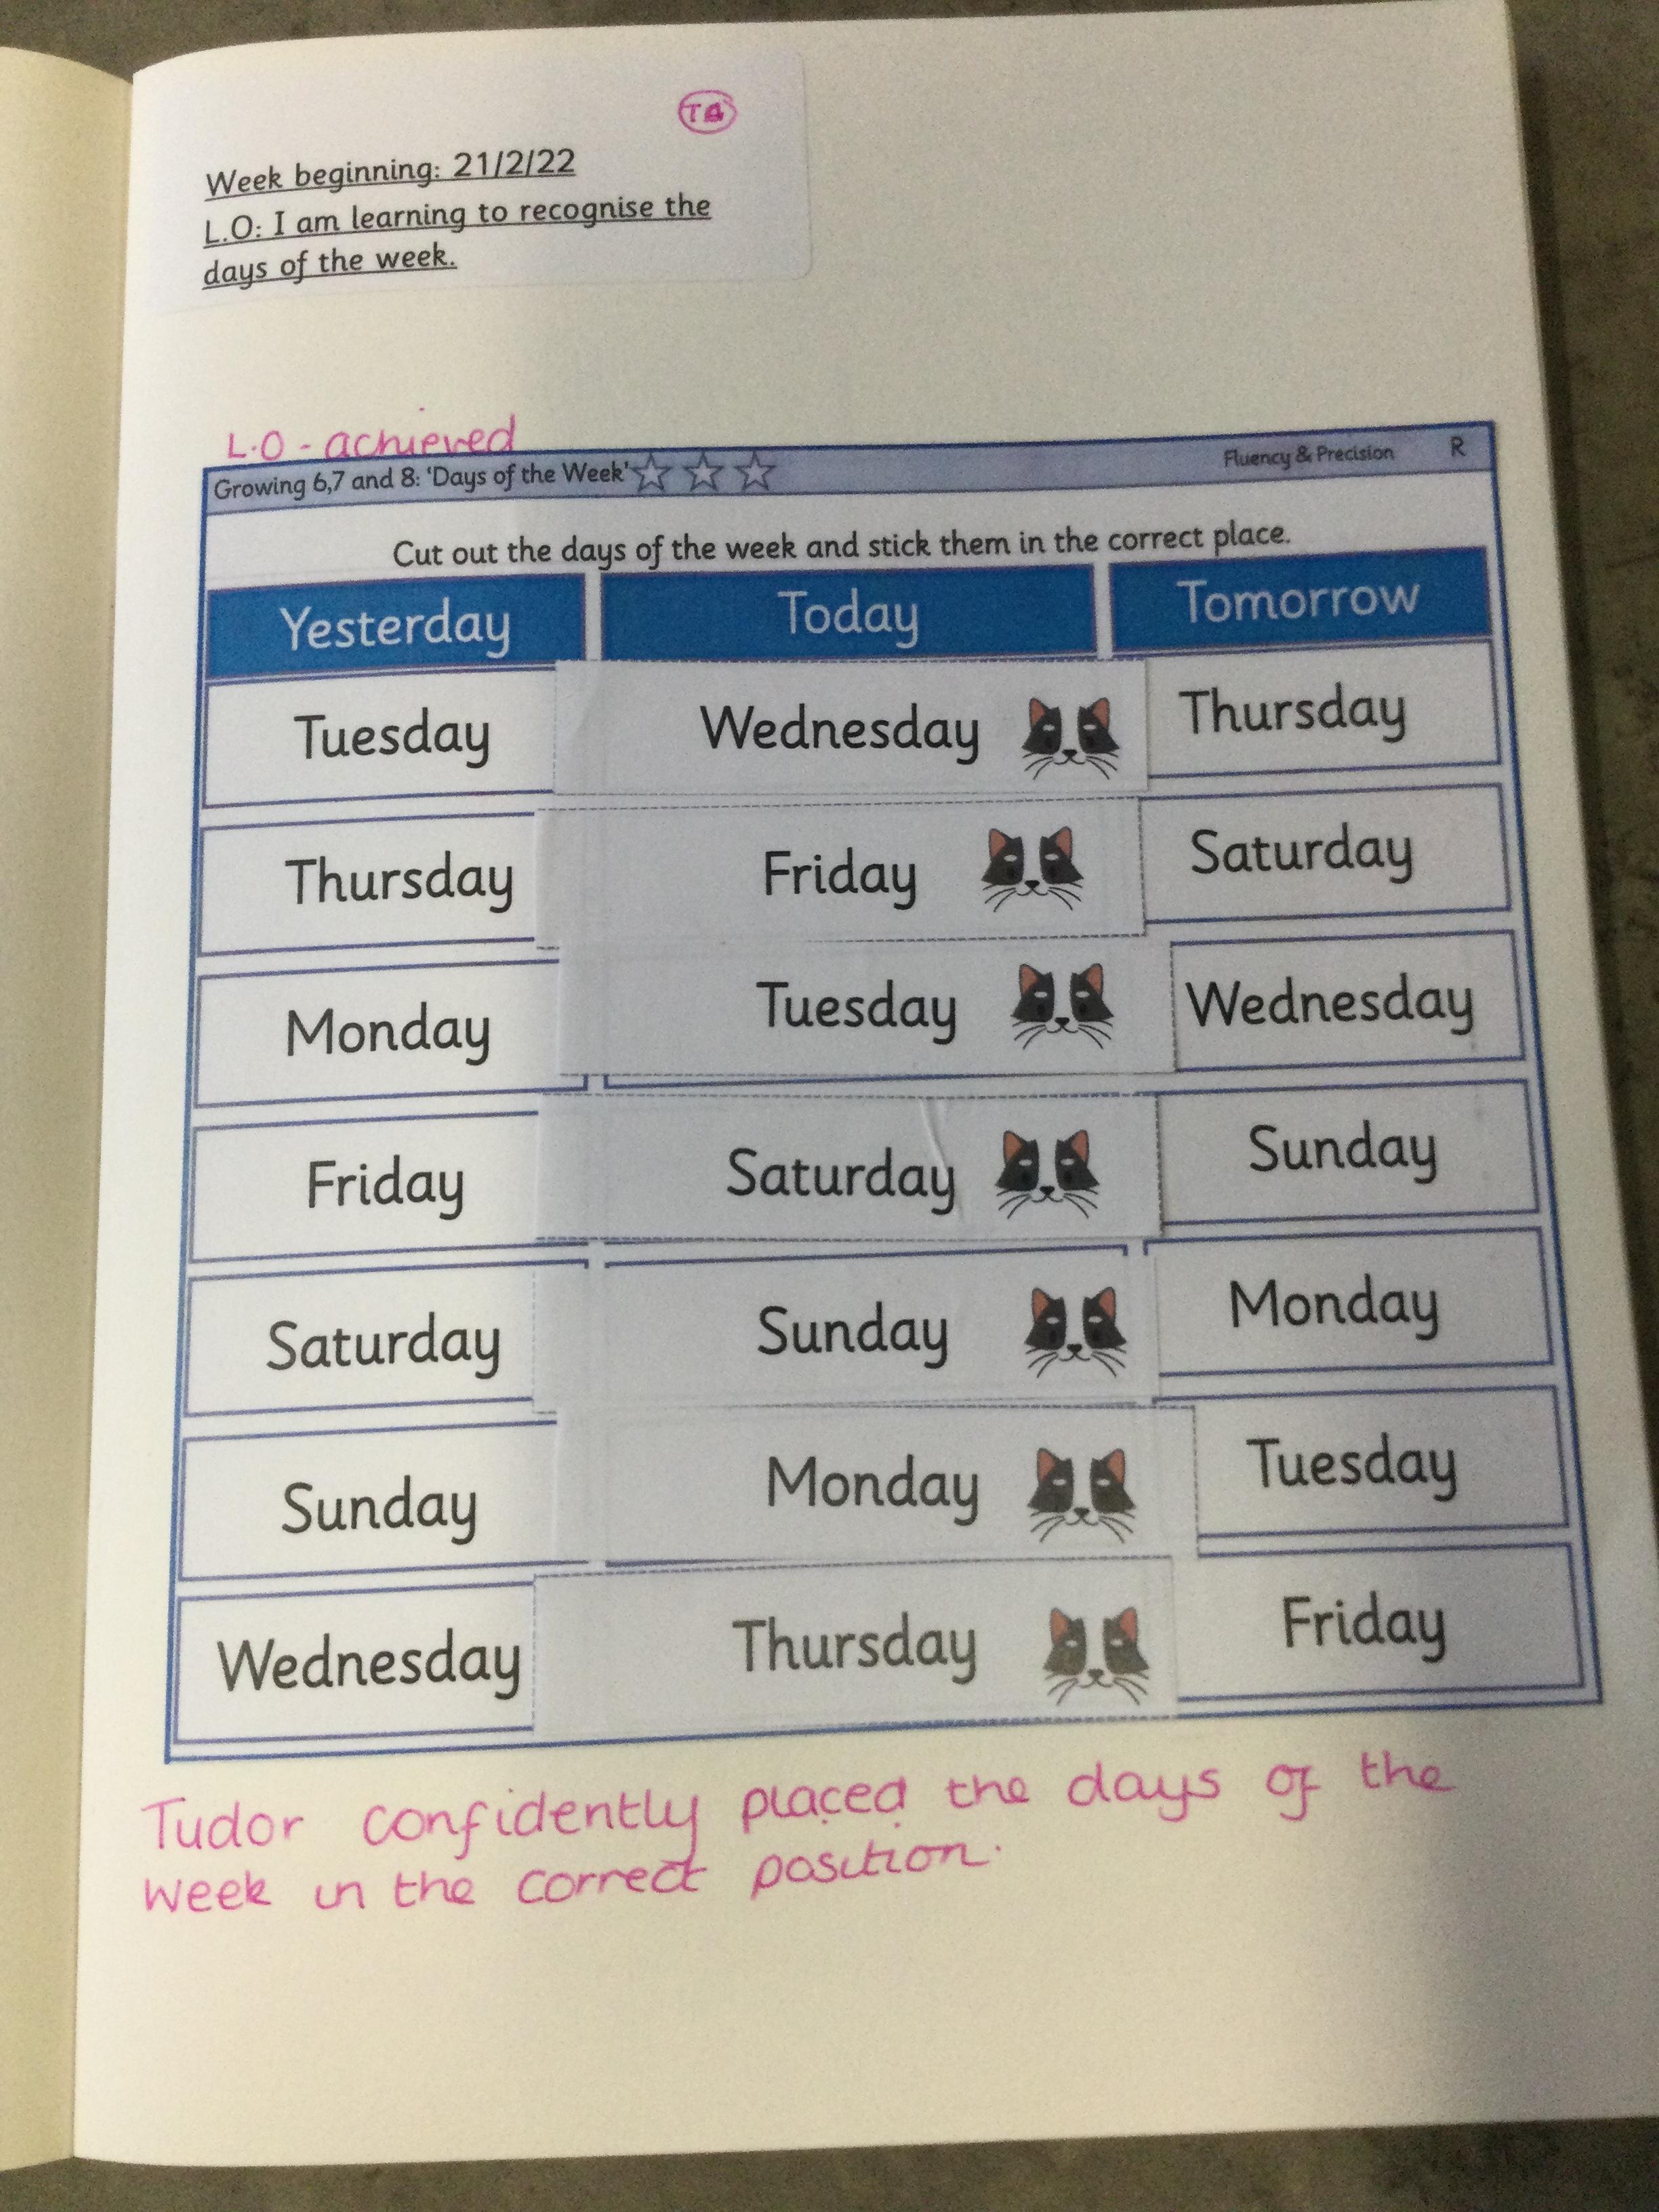 Week beginning: 21/2/22
L.O: I am learning to recognise the
days of the week.
L.O - achieved
Growing 6,7 and 8: 'Days of the Week' Fluency & Precision R
Cut out the days of the week and stick them in the correct place.
Yesterday Today Tomorrow
Tuesday Wednesday Thursday
Thursday Friday Saturday
Monday Tuesday Wednesday
Friday Saturday Sunday
Saturday Sunday Monday
Sunday Monday Tuesday
Wednesday Thursday Friday
Tudor confidently placed the days of the
week in the correct position.